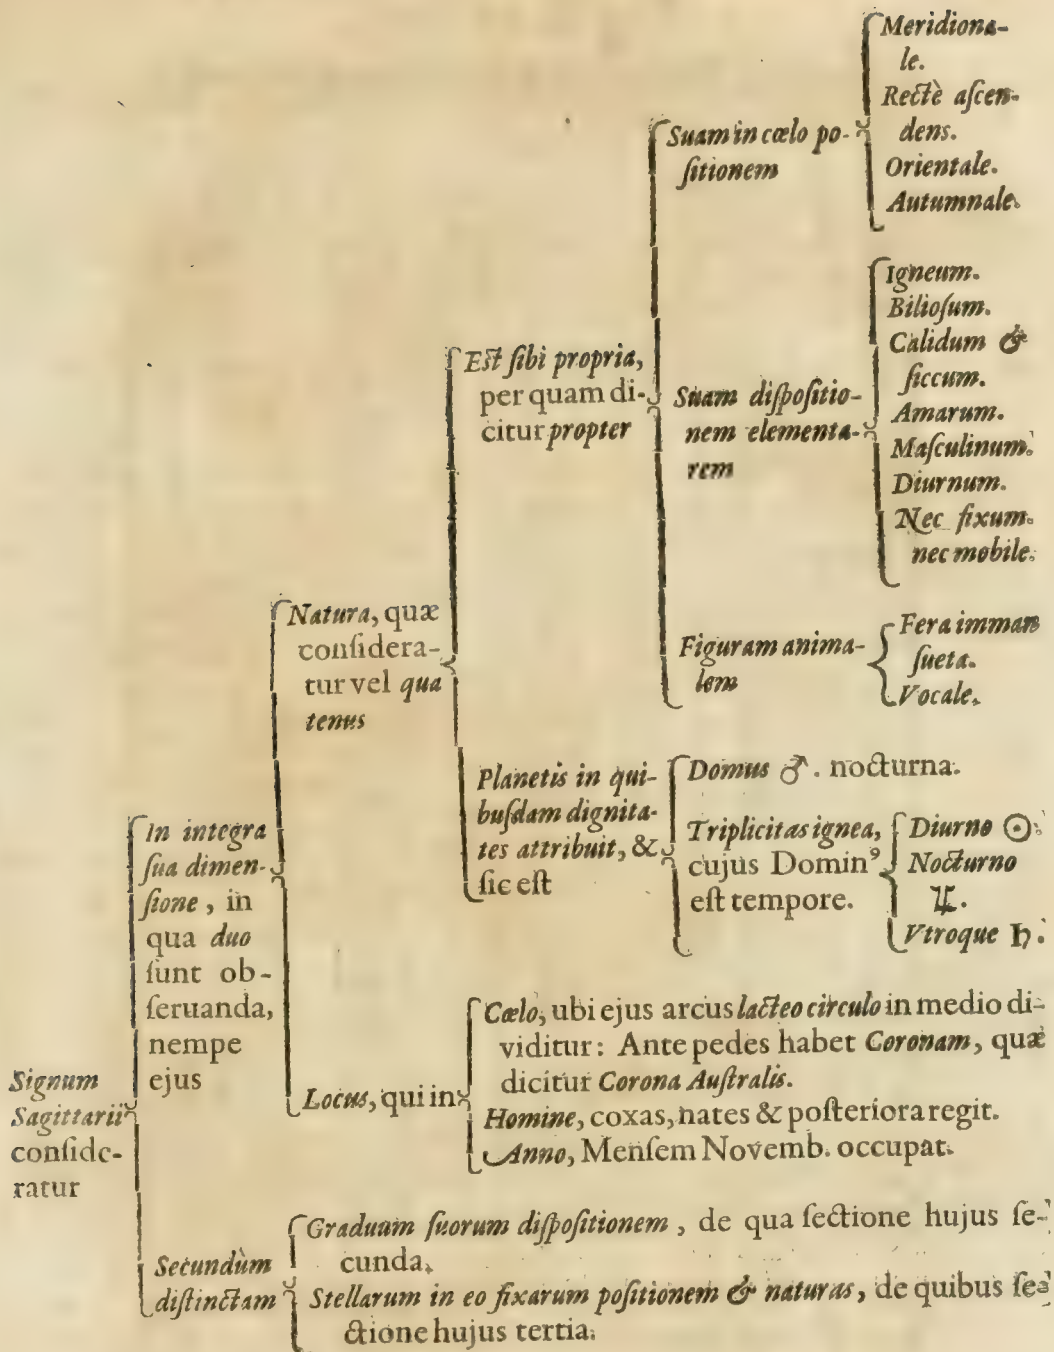 Signum
Sagittarii
conside-
ratur
In integra
sua dimen-
sione, in
qua duo
sunt ob-
seruanda,
nempe
ejus
Natura, quæ
considera-
tur vel qua
tenus
Est sibi propria,
per quam di-
citur propter
Suam in cœlo po-
sitionem
Meridiona-
le.
Rectè ascen-
dens.
Orientale.
Autumnale.
Suam dispositio-
nem elementa-
rem
Igneum.
Biliosum.
Calidum &
siccum.
Amarum.
Masculinum.
Diurnum.
Nec fixum.
nec mobile.
Figuram anima-
lem
Fera imman
sueta.
Vocale.
Planetis in qui-
busdam dignita-
tes attribuit, &
sic est
Domus ♂. nocturna.
Triplicitas ignea,
cujus Dominꝰ
est tempore.
Diurno ☉.
Nocturno
♃.
Vtroque ♄.
Locus, qui in
Cœlo, ubi ejus arcus lacteo circulo in medio di-
viditur: Ante pedes habet Coronam, quæ
dicitur Corona Australis.
Homine, coxas, nates & posteriora regit.
Anno, Mensem Novemb. occupat.
Secundùm
distinctam
Graduum suorum dispositionem, de qua sectione hujus se-
cunda.
Stellarum in eo fixarum positionem & naturas, de quibus se-
ctione hujus tertia.